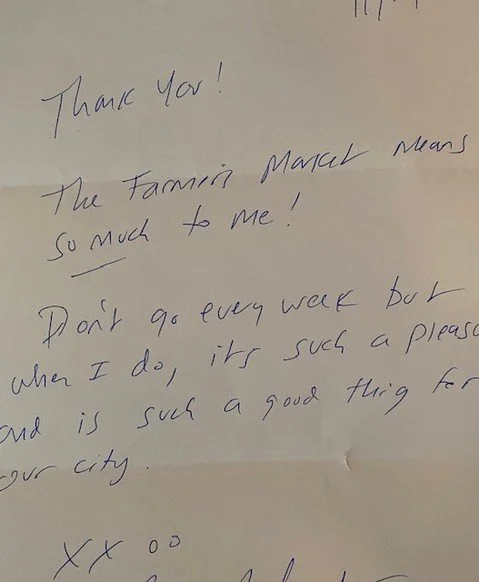 Thank You!
The Farmer's Market Means
so much to me!
Don't go every week but
when I do, it's such a pleasu
and is such a good thing for
our city.
XX oo